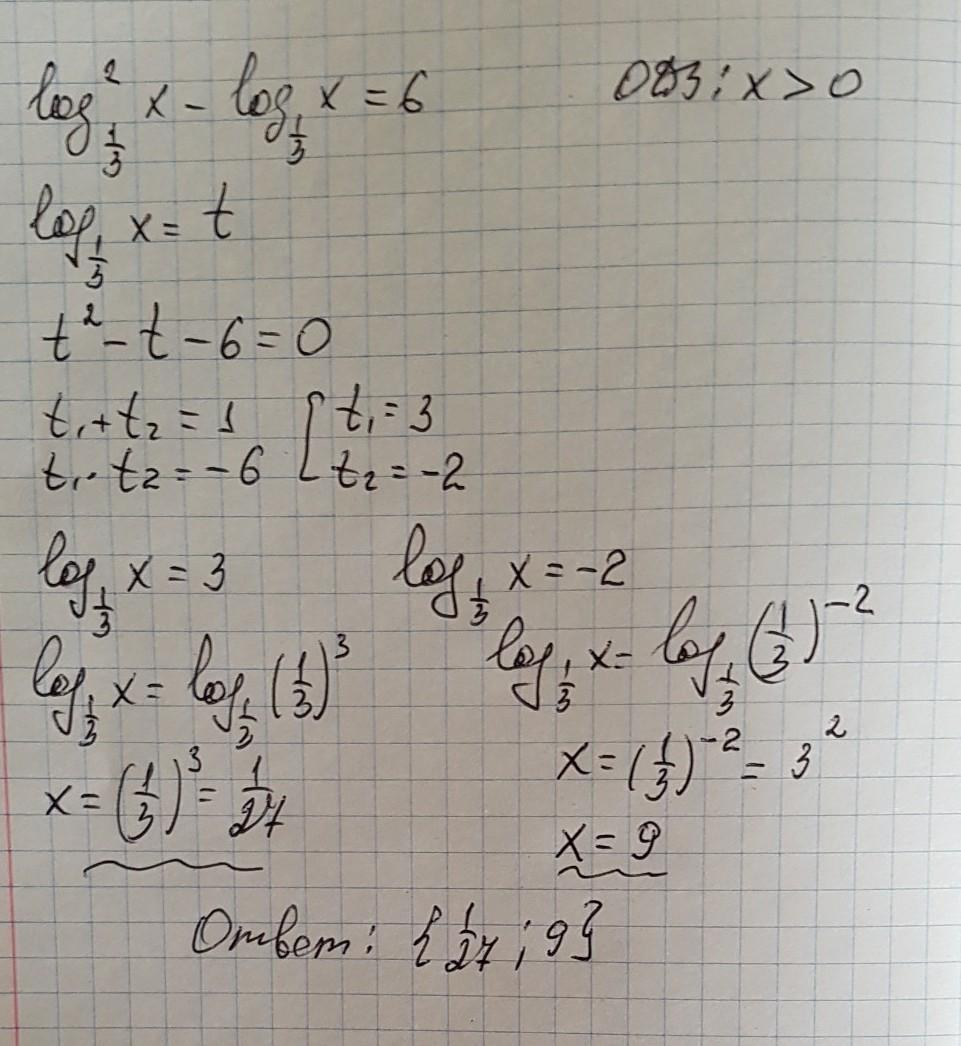 log²_{1/3} x - log_{1/3} x = 6 ОДЗ: x > 0
log_{1/3} x = t
t² - t - 6 = 0
t₁ + t₂ = 1 [ t₁ = 3
t₁ · t₂ = -6 [ t₂ = -2
log_{1/3} x = 3 log_{1/3} x = -2
log_{1/3} x = log_{1/3} (1/3)³ log_{1/3} x = log_{1/3} (1/3)⁻²
x = (1/3)³ = 1/27 x = (1/3)⁻² = 3²
x = 9
Ответ: {1/27 ; 9}